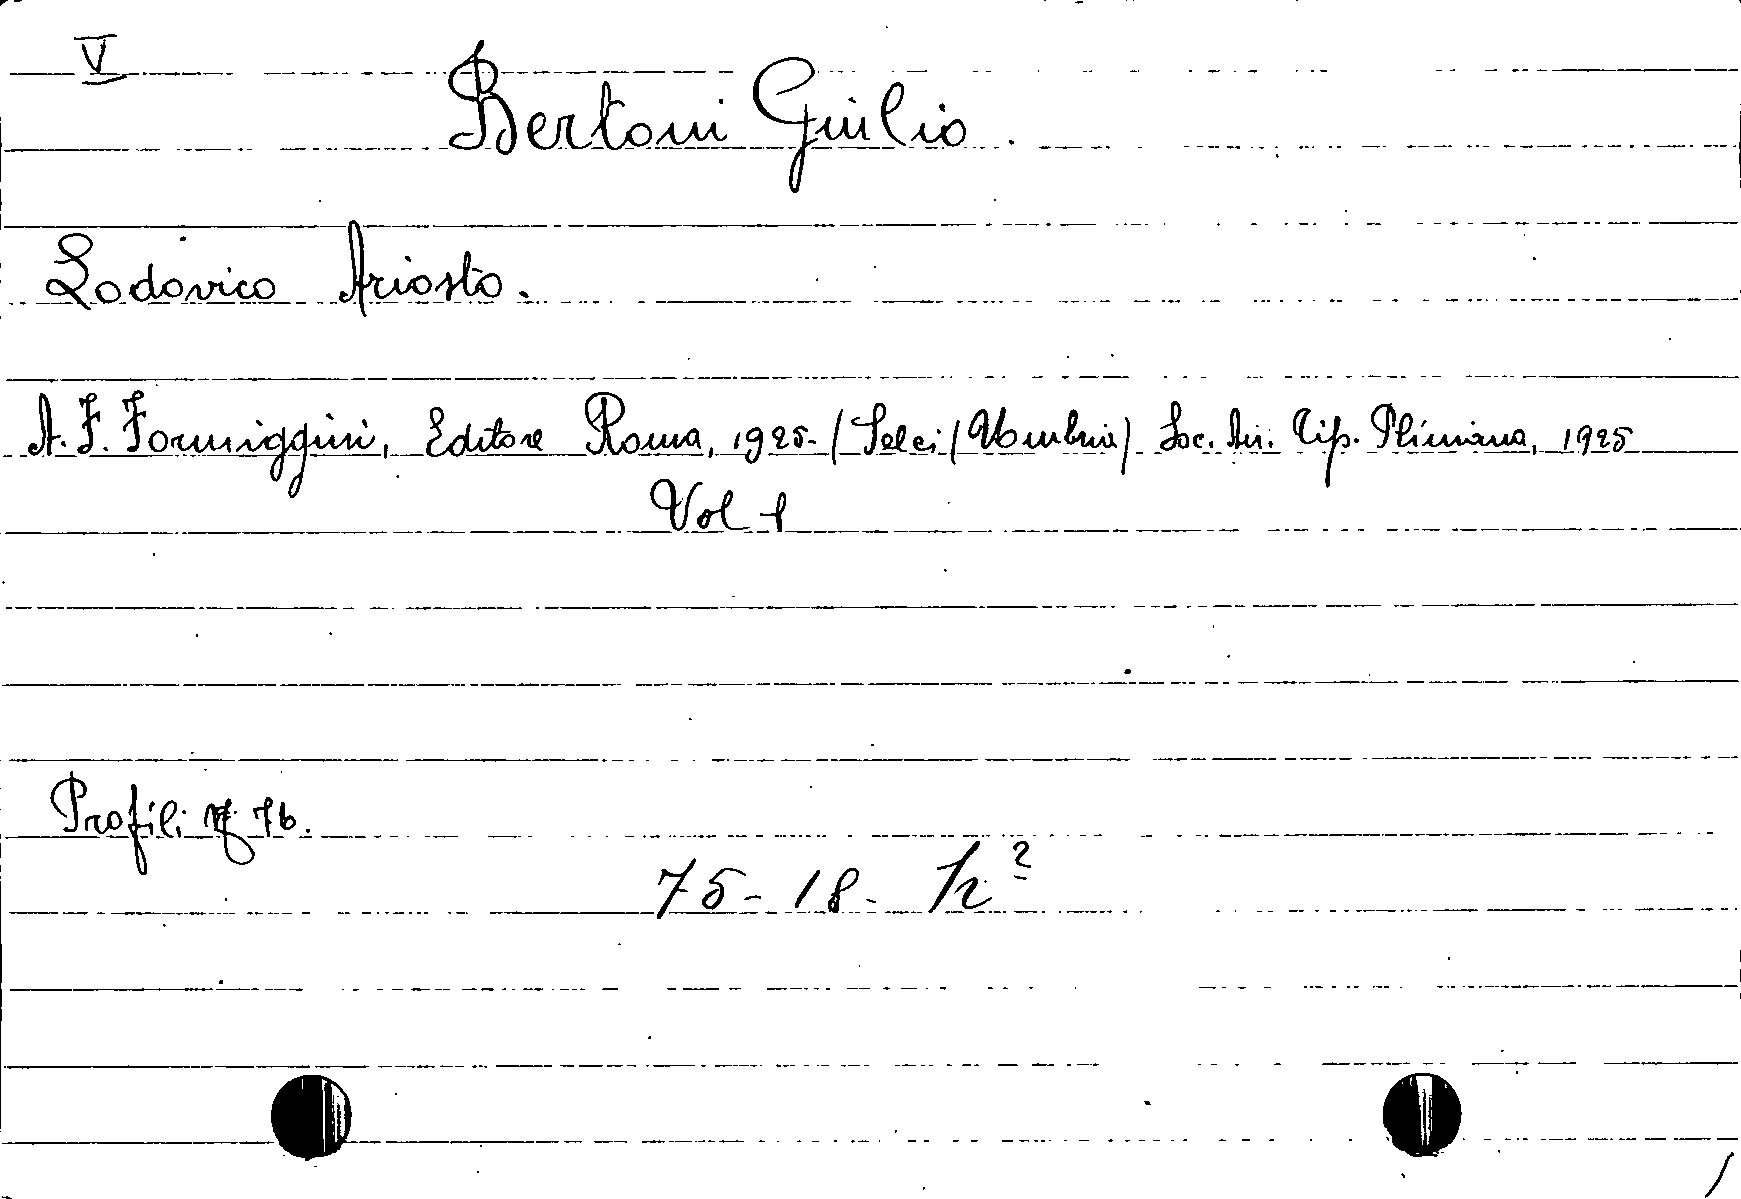 V
Bertoni Giulio.
Lodovico Ariosto.
A. F. Formiggini, Editore Roma, 1925. (Selci (Umbria) Soc. An. Tip. Pliniana, 1925
Vol 1
Profili 76.
75-18-